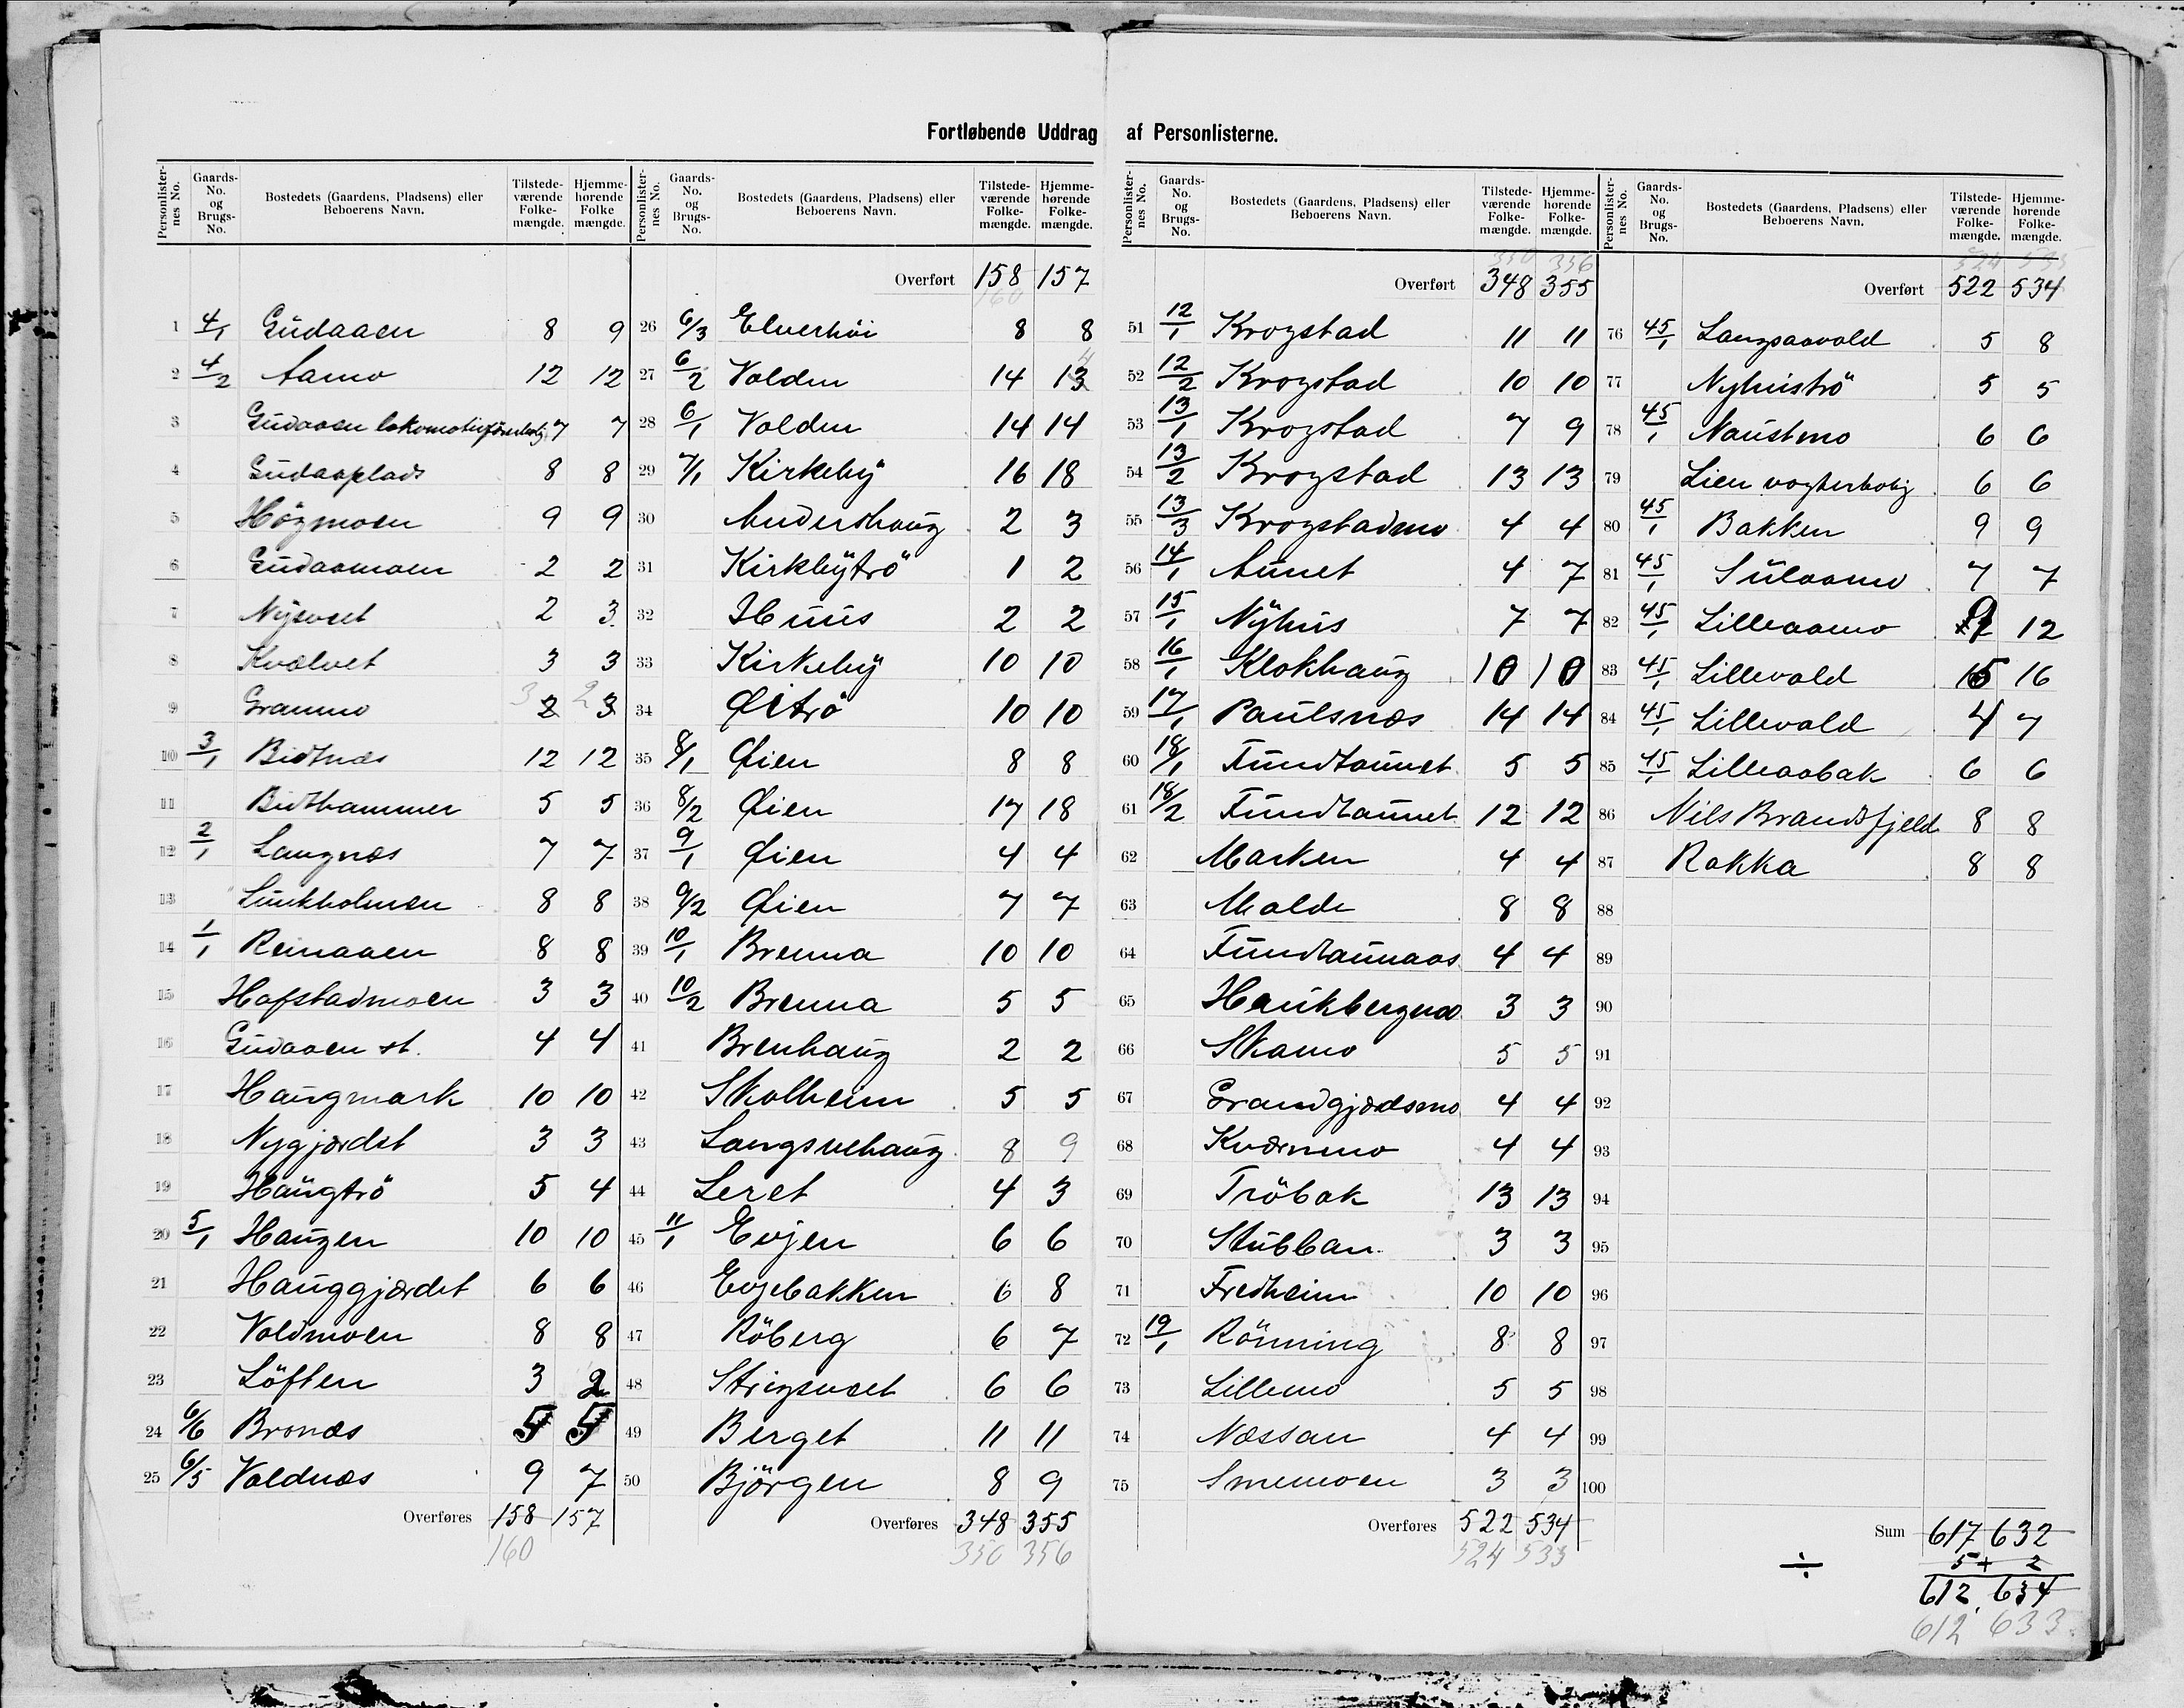 Fortløbende Uddrag af Personlisterne.
Personlister- nes No. Gaards- No. og Brugs- No. Bostedets (Gaardens, Pladsens) eller Beboerens Navn. Tilstede- værende Folke- mængde. Hjemme- hørende Folke mængde.
1 4/1 Gudaaen 8 9
2 4/2 Aamo 12 12
3 Gudaaen lokomotivförerbolig 7 7
4 Gudaaplads 8 8
5 Högmoen 9 9
6 Gudaamoen 2 2
7 Nysveet 2 3
8 Kvælvet 3 3
9 Gramo 3 2 2 3
10 3/1 Bidtnæs 12 12
11 Bidthammer 5 5
12 2/1 Langnæs 7 7
13 Lunkholmen 8 8
14 1/1 Reinaaen 8 8
15 Hofstadmoen 3 3
16 Gudaaen st. 4 4
17 Haugmark 10 10
18 Nygjærdet 3 3
19 Haugtrö 5 4
20 5/1 Haugen 10 10
21 Hauggjærdet 6 6
22 Voldmoen 8 8
23 Löften 3 2
24 6/6 Bronæs 5 5
25 6/5 Voldnæs 9 7
Overføres 158 157
160
Personlister- nes No. Gaards- No. og Brugs- No. Bostedets (Gaardens, Pladsens) eller Beboerens Navn. Tilstede- værende Folke- mængde. Hjemme- hørende Folke- mængde.
Overført 158 157
160
26 6/3 Elverhöi 8 8
27 6/2 Volden 14 13 4
28 6/1 Volden 14 14
29 7/1 Kirkeby 16 18
30 Andershaug 2 3
31 Kirkbytrö 1 2
32 Huus 2 2
33 Kirkeby 10 10
34 Øitrö 10 10
35 8/1 Øien 8 8
36 8/2 Øien 17 18
37 9/1 Øien 4 4
38 9/2 Øien 7 7
39 10/1 Brenna 10 10
40 10/2 Brenna 5 5
41 Brenhaug 2 2
42 Skolheim 5 5
43 Langsvehaug 8 9
44 Leret 4 3
45 11/1 Evjen 6 6
46 Evjebakken 6 8
47 Röberg 6 7
48 Strigsveet 6 6
49 Berget 11 11
50 Björgen 8 9
Overføres 348 355
350 356
Personlister- nes No. Gaards- No. og Brugs- No. Bostedets (Gaardens, Pladsens) eller Beboerens Navn. Tilstede- værende Folke- mængde. Hjemme- hørende Folke- mængde.
350 356
Overført 348 355
51 12/1 Krogstad 11 11
52 12/2 Krogstad 10 10
53 13/1 Krogstad 7 9
54 13/2 Krogstad 13 13
55 13/3 Krogstadmo 4 4
56 14/1 Aunet 4 7
57 15/1 Nyhus 7 7
58 16/1 Klokhaug 10 10
59 17/1 Paulsnæs 14 14
60 18/1 Fundtaunet 5 5
61 18/2 Fundtaunet 12 12
62 Marken 4 4
63 Molde 8 8
64 Fundtaunaas 4 4
65 3 3
66 Skamo 5 5
67 Grandgjærdsmo 4 4
68 Kværnmo 4 4
69 Tröbak 13 13
70 Stubban 3 3
71 Fredheim 10 10
72 19/1 Rönning 8 8
73 Lillemo 5 5
74 Næssan 4 4
75 Smemoen 3 3
Overføres 522 534
524 535
Personlister- nes No. Gaards- No. og Brugs- No. Bostedets (Gaardens, Pladsens) eller Beboerens Navn. Tilstede- værende Folke- mængde. Hjemme- hørende Folke- mængde.
524 535
Overført 522 534
76 45/1 Langsaavold 5 8
77 Nyhuströ 5 5
78 45/1 Naustmo 6 6
79 Lien vogterbolig 6 6
80 45/1 Bakken 9 9
81 45/1 Sulaamo 7 7
82 45/1 Lilleaamo 12
83 45/1 Lillevold 15 16
84 45/1 Lillevold 4 7
85 45/1 Lilleaabak 6 6
86 Nils Brandsfjeld 8 8
87 Rokka 8 8
88
89
90
91
92
93
94
95
96
97
98
99
100
Sum 617 632
÷ 5 + 2
612 634
612 633